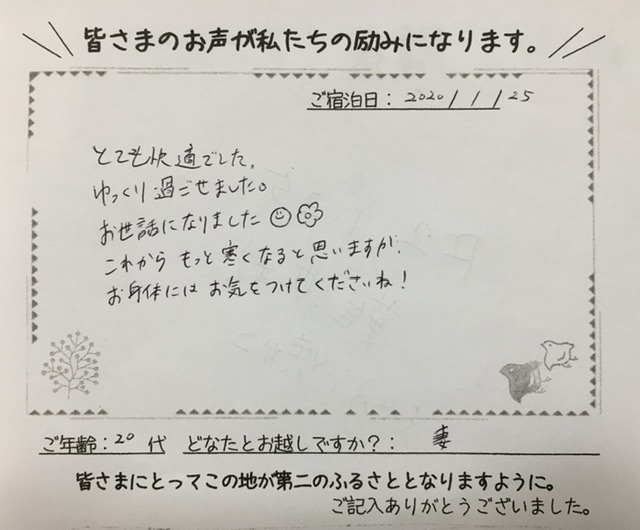 皆さまのお声が私たちの励みになります。
ご宿泊日：2020/1/25
とても快適でした。
ゆっくり過ごせました。
お世話になりました
これから もっと寒くなると思いますが、
お身体には お気をつけてくださいね！
ご年齢：20代 どなたとお越しですか？：妻
皆さまにとってこの地が第二のふるさととなりますように。
ご記入ありがとうございました。